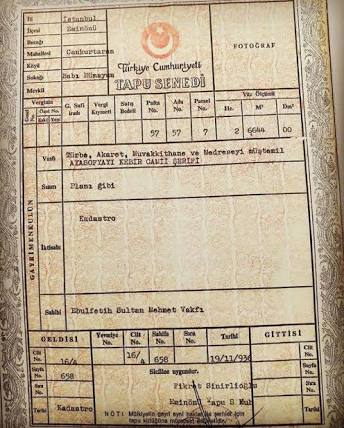 İli İstanbul
İlçesi Eminönü
Bucağı
Mahallesi Cankurtaran
Köyü
Sokağı Babı Hümayun
Mevkii
Türkiye Cumhuriyeti
TAPU SENEDİ
FOTOĞRAF
Verginin
G. Safi iradı
Vergi Kıymeti
Satış Bedeli
Pafta No.
Ada No.
Parsel No.
Yüz Ölçümü
He. M² Dm²
57 57 7 2 6644 00
GAYRİMENKULÜN
Vasfı Türbe, Akaret, Muvakkithane ve Medreseyi müştemil
AYASOFYAYI KEBİR CAMİİ ŞERİFİ
Sınırı Planı gibi
İktisabı Kadastro
Sahibi Ebulfetih Sultan Mehmet Vakfı
GELDİSİ
Yevmiye No.
Cilt No.
Sahife No.
Sıra No.
Tarihi
GİTTİSİ
Cilt No. 16/4
16/4 658 19/11/936
Cilt No.
Sayfa No. 658
Siciline uygundur.
Sayfa No.
Sıra No.
Fikret Sinirlioğlu
Sıra No.
Tarihi Kadastro
Eminönü Tapu S Muh
Tarihi
NOT: Mülkiyetin gayri ayni haklar ile şerhler için
tapu kütüğüne müracaat edilmelidir.